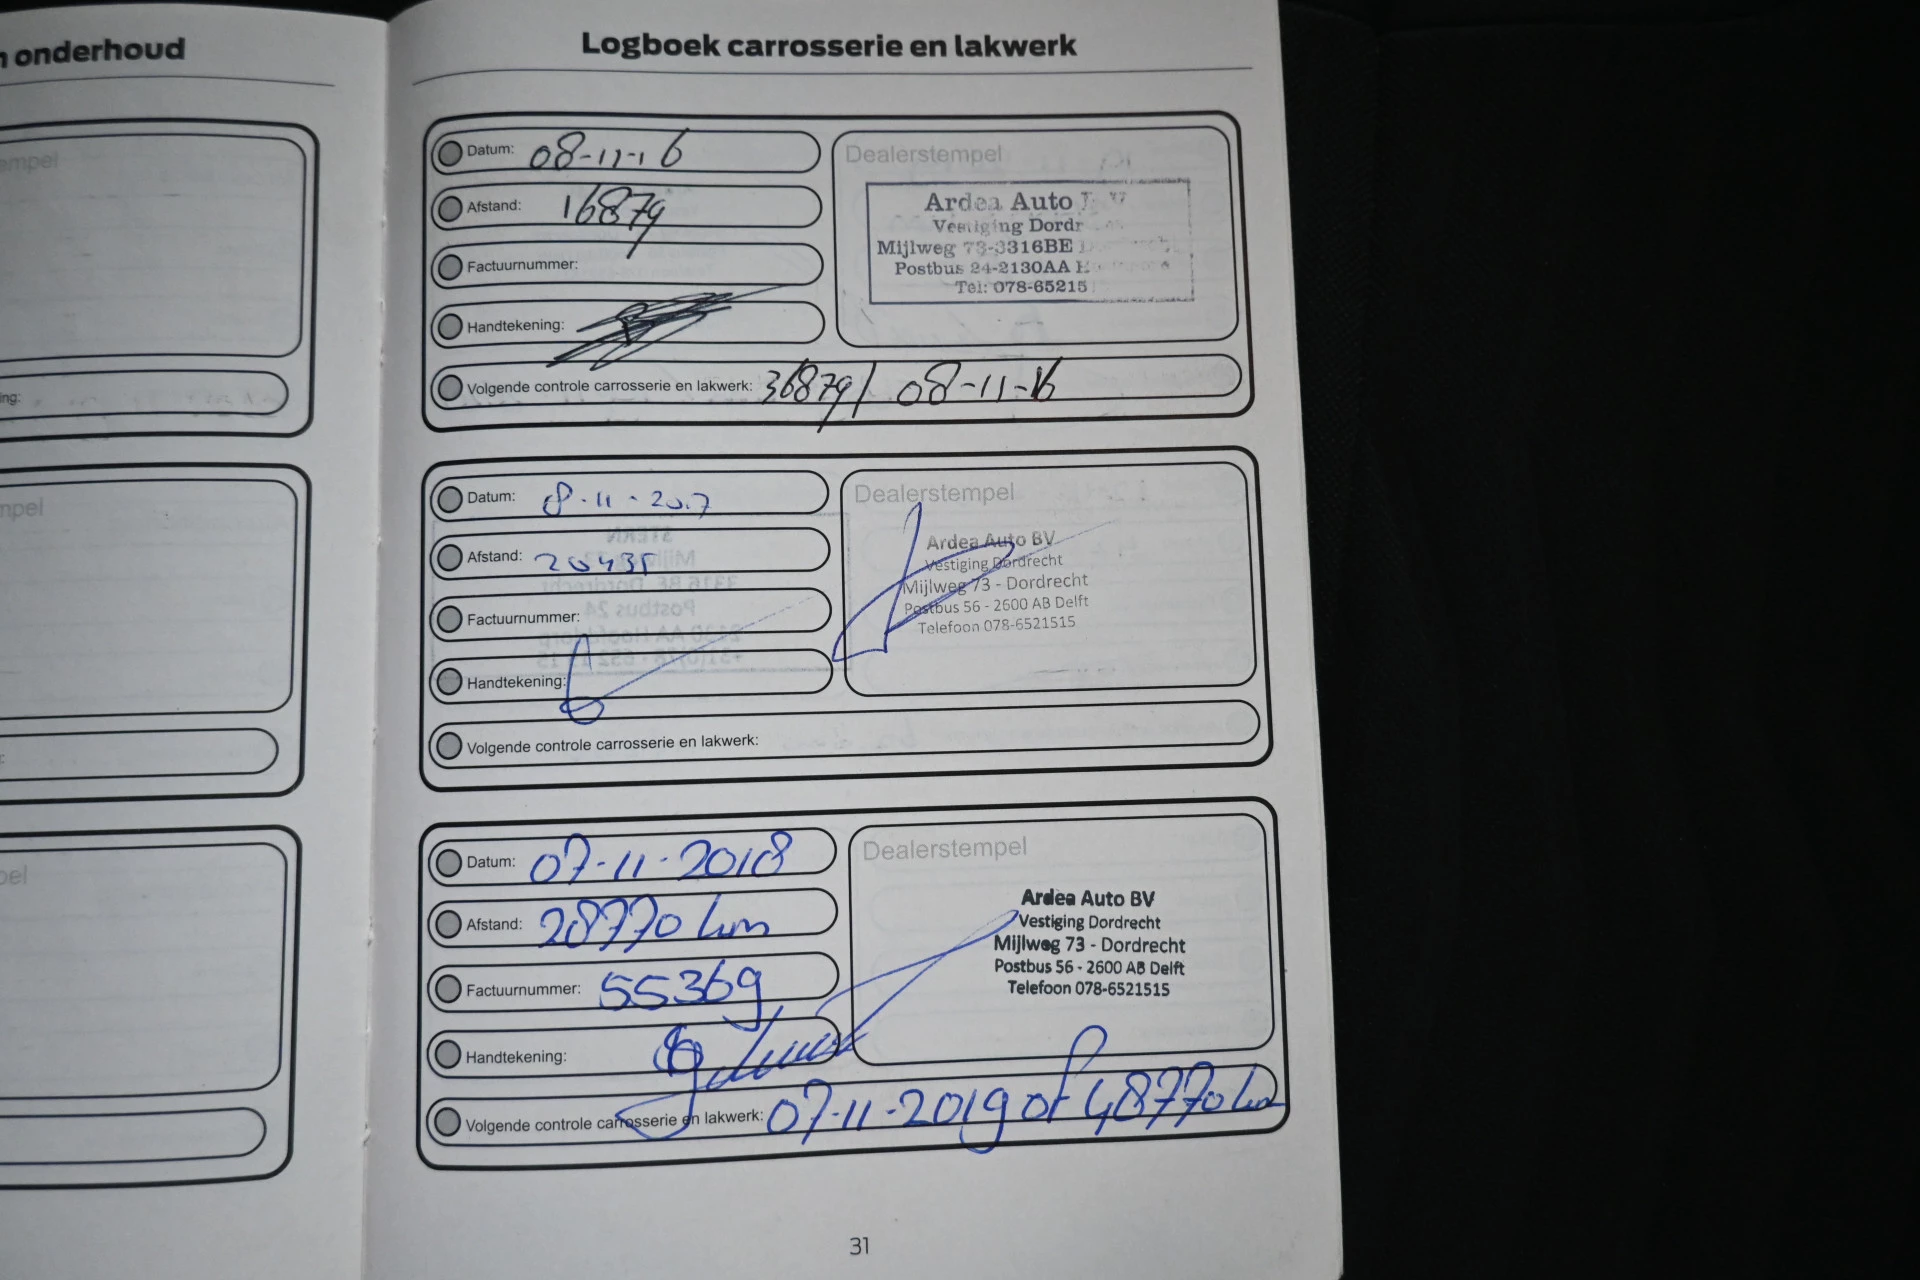 onderhoud
Logboek carrosserie en lakwerk
empel
ing:
mpel
pel
Datum: 08-11-16
Afstand: 16879
Factuurnummer:
Handtekening:
Dealerstempel
Ardea Auto
Vestiging Dordr
Mijlweg 73-3316BE
Postbus 24-2130AA
Tel: 078-65215
Volgende controle carrosserie en lakwerk: 36879/ 08-11-16
Datum: 8-11-2017
Afstand: 20435
Factuurnummer:
Handtekening:
Dealerstempel
Ardea Auto BV
Vestiging Dordrecht
Mijlweg 73 - Dordrecht
Postbus 56 - 2600 AB Delft
Telefoon 078-6521515
Volgende controle carrosserie en lakwerk:
Datum: 07-11-2018
Afstand: 28770 km
Factuurnummer: 55369
Handtekening:
Dealerstempel
Ardea Auto BV
Vestiging Dordrecht
Mijlweg 73 - Dordrecht
Postbus 56 - 2600 AB Delft
Telefoon 078-6521515
Volgende controle carrosserie en lakwerk: 07-11-2019 of 48770 km
31